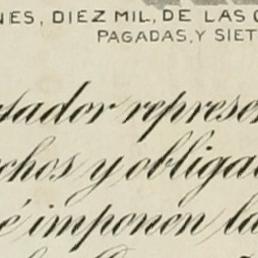 NES, DIEZ MIL, DE LAS C
PAGADAS, Y SIET
tador represen
chos y obliga
é imponen la